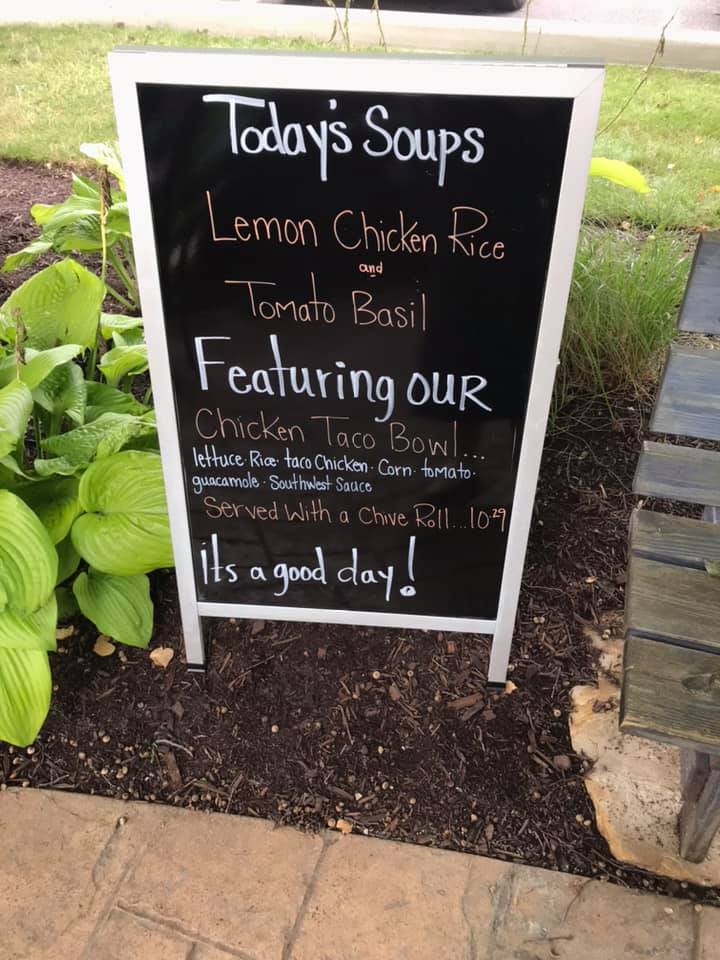 Today's Soups
Lemon Chicken Rice
and
Tomato Basil
Featuring our
Chicken Taco Bowl...
lettuce · Rice · taco Chicken · Corn · tomato ·
guacamole · Southwest Sauce
Served With a Chive Roll...10.29
it's a good day!